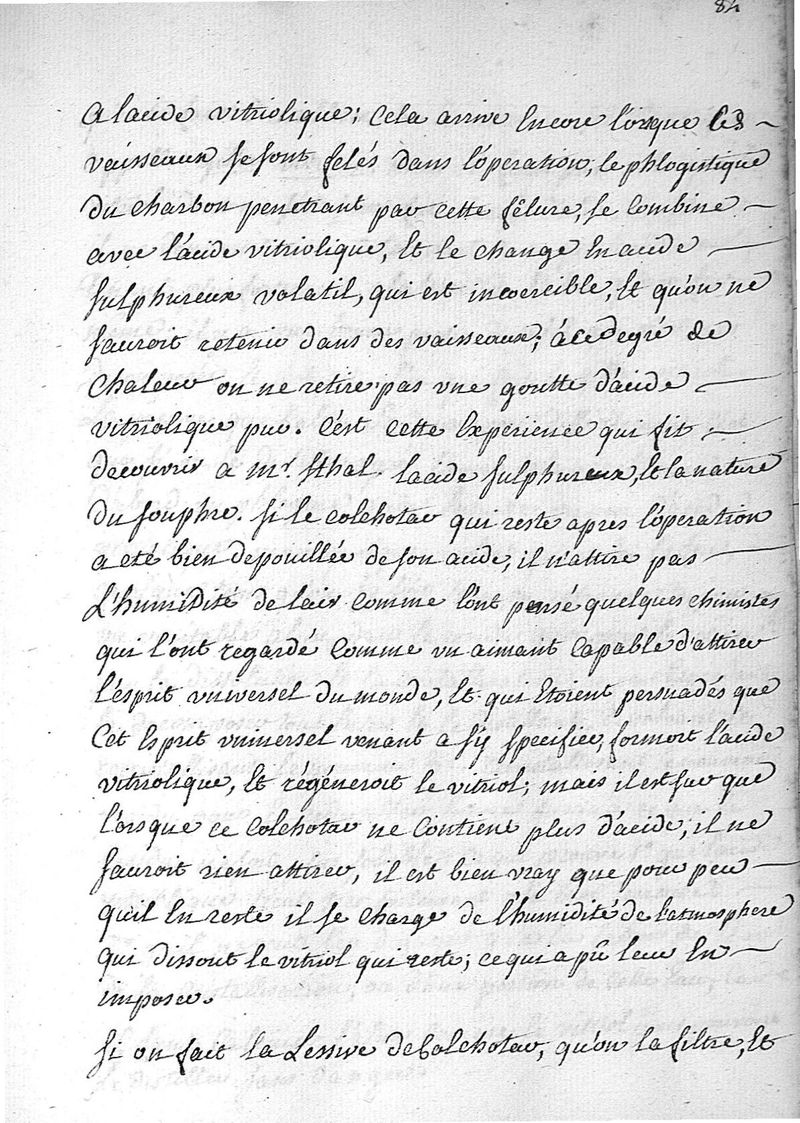 84
a lacide vitriolique; cela arrive encore lorsque les
vaisseaux se sont felés dans l'operation, le phlogistique
du charbon penetrant par cette fêlure, se combine
avec l'acide vitriolique, et le change en acide
sulphureux volatil, qui est incoercible, et qu'on ne
sauroit retenir dans des vaisseaux; à ce degré de
chaleur on ne retire pas une goutte d'acide
vitriolique pur. C'est cette experience qui fit
decouvrir a mr. Sthal lacide sulphureux, et la nature
du souphre. Si le colchotar qui reste apres l'operation
a eté bien depouillée de son acide, il n'attire pas
L'humidité de lair comme l'ont pensé quelques chimistes
qui l'ont regardé comme un aimant capable d'attirer
l'esprit universel du monde, et qui etoient persuadés que
cet esprit universel venant a s'y specifier, formoit l'acide
vitriolique, et régéneroit le vitriol; mais il est sur que
l'orsque ce colchotar ne contient plus d'acide, il ne
sauroit rien attirer, il est bien vray que pour peu
quil en reste il se charge de l'humidité de l'atmosphere
qui dissout le vitriol qui reste; ce qui a pû leur en
imposer.
Si on fait la Lessive de Colchotar, qu'on la filtre, et